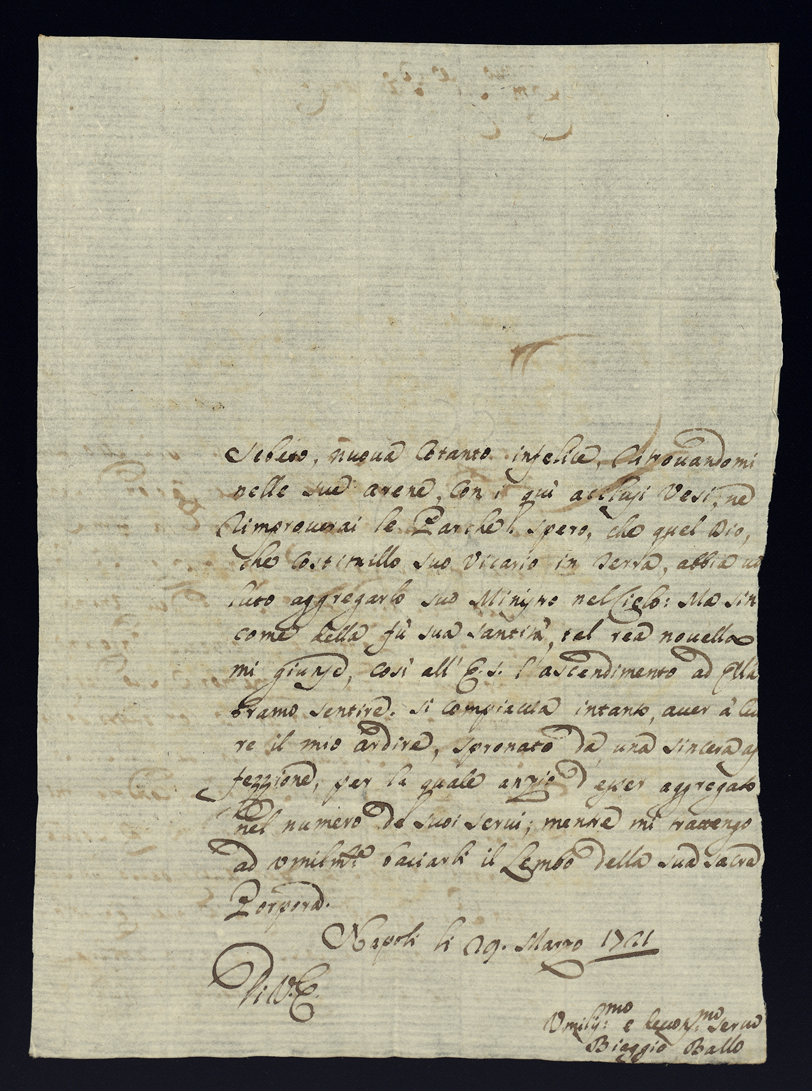 Sebeto, nuova cotanto infelice, ritrovandomi
nelle sue arene, con i quì acclusi Versi, ne
rimproverai le Parche. Spero, che quel Dio,
che costituillo suo Vicario in Terra, abbia vo
luto aggregarlo suo Ministro nel Cielo: Ma sin
come della fù sua Santità, tal rea novella
mi giunse, così all' E. S. l'ascendimento ad Ella
bramo sentire. Si compiaccia intanto, aver à cu
re il mio ardire, spronato da una sincera af
fezzione, per la quale anzio d'esser aggregato
nel numero de suoi servi; mentre mi trattengo
ad vmilmte baciarli il Lembo della sua sacra
Porpora.
Napoli li 29. Marzo 1721
Di V. E.
Vmiliss:mo e devotiss:mo servo
Biaggio Ballo